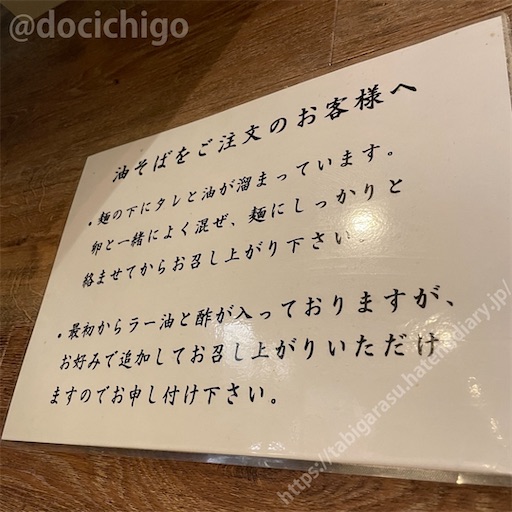 @docichigo
油そばをご注文のお客様へ
・麺の下にタレと油が溜まっています。
卵と一緒によく混ぜ、麺にしっかりと
絡ませてからお召し上がり下さい。
・最初からラー油と酢が入っておりますが、
お好みで追加してお召し上がりいただけ
ますのでお申し付け下さい。
https://tabigarasu.hatenadiary.jp/